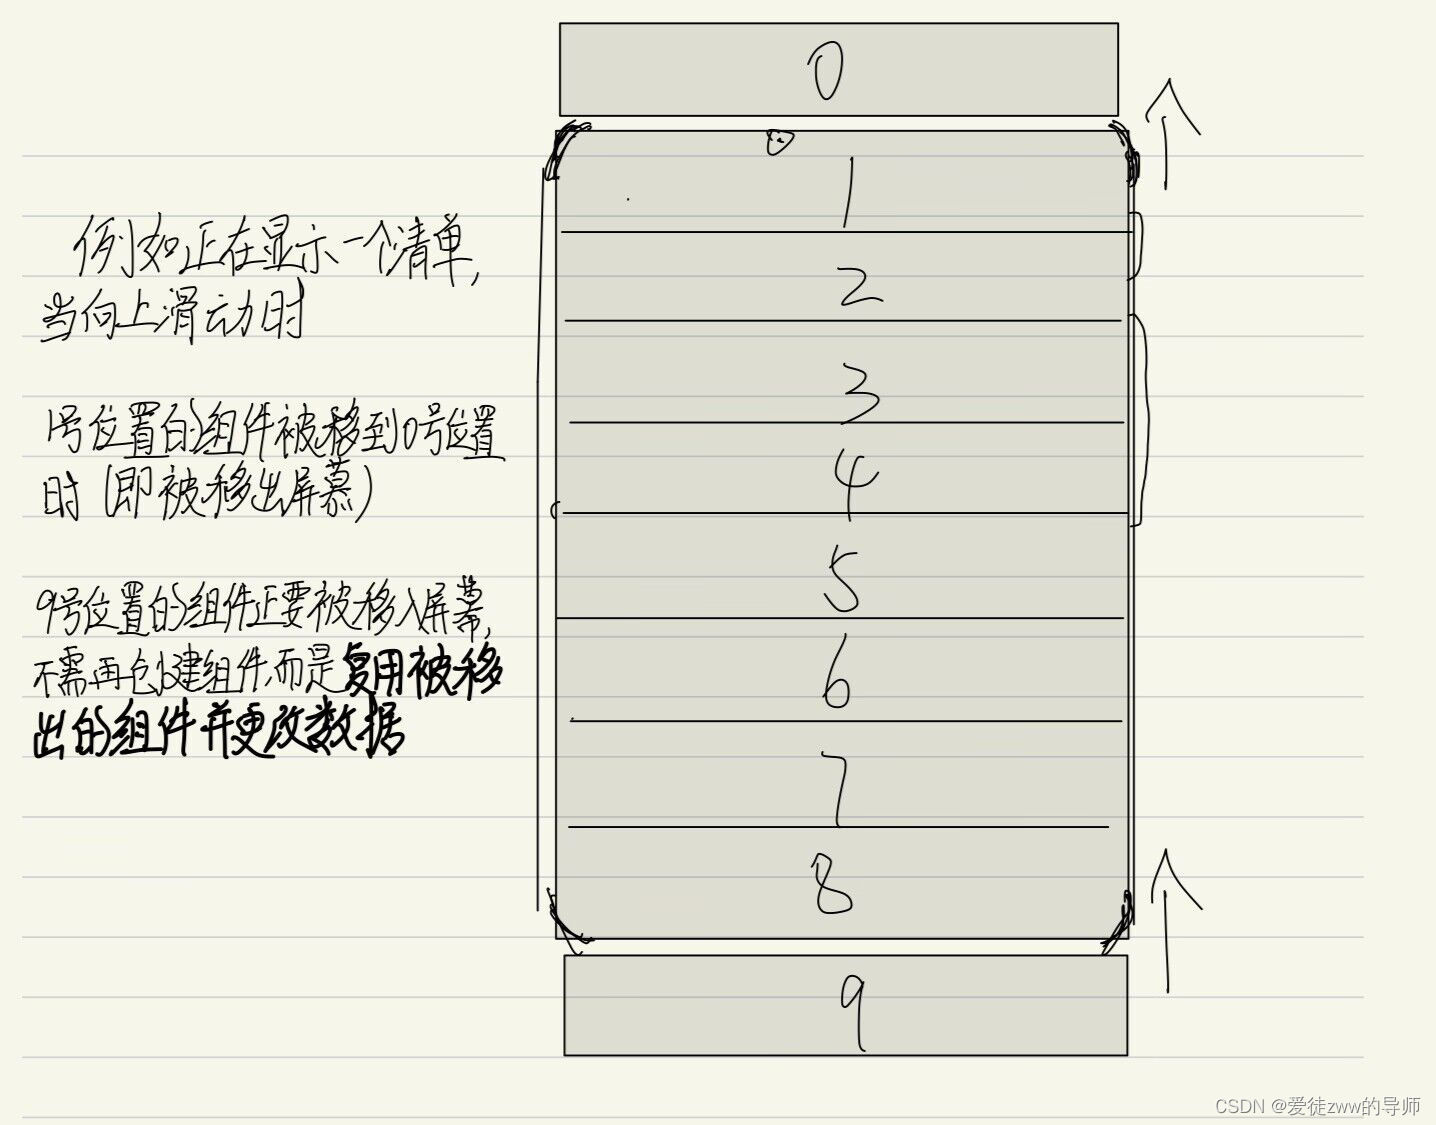 0
1
2
3
4
5
6
7
8
9
例如正在显示一个清单,
当向上滑动时
1号位置的组件被移到0号位置
时(即被移出屏幕)
9号位置的组件正要被移入屏幕,
不需再创建组件,而是复用被移
出的组件并更改数据
CSDN @爱徒zww的导师